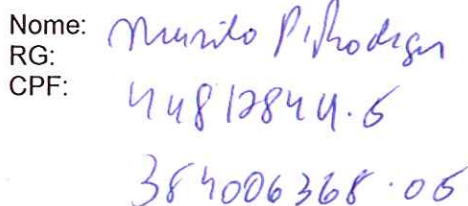 Nome: Murilo P. Rodrigues
RG: 44817844.6
CPF: 384006368.06